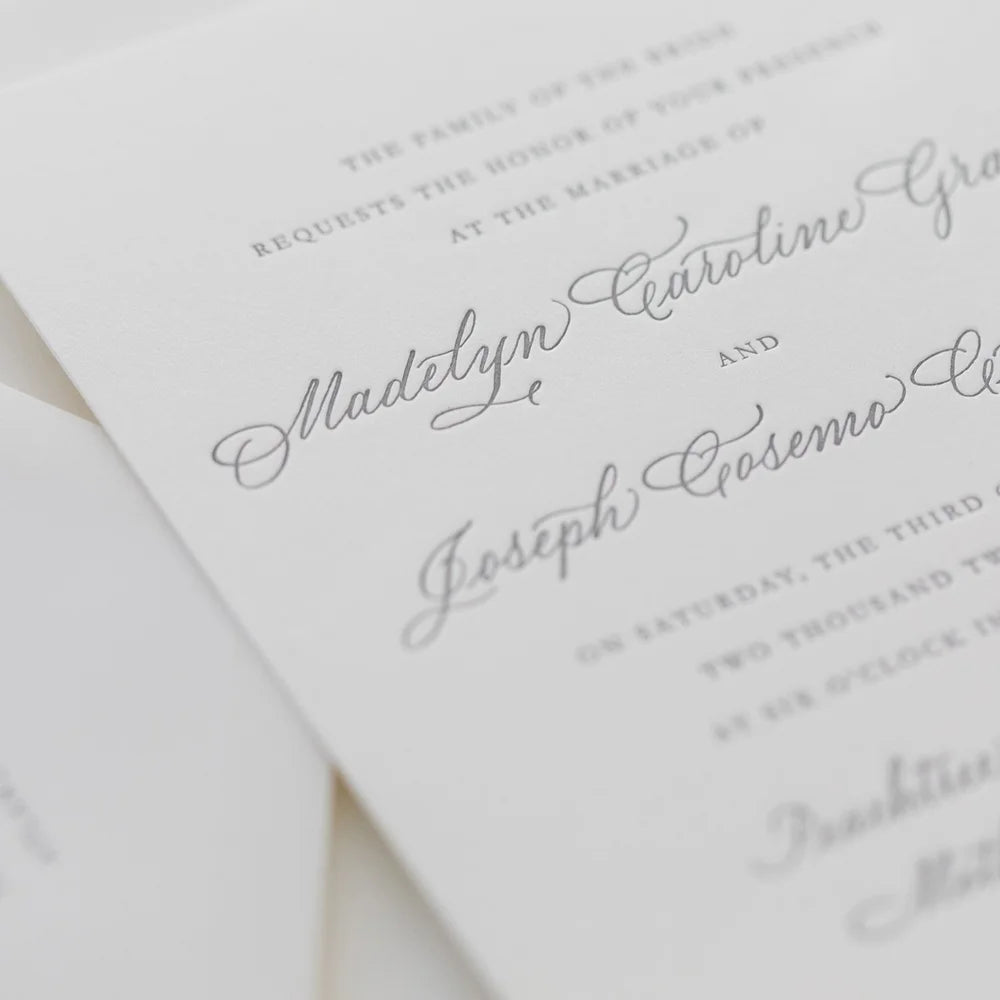 THE FAMILY OF THE BRIDE
REQUESTS THE HONOR OF YOUR PRESENCE
AT THE MARRIAGE OF
Madelyn Caroline Gra
AND
Joseph Cosemo
ON SATURDAY, THE THIRD
TWO THOUSAND TW
AT SIX O'CLOCK IN
Peachtree